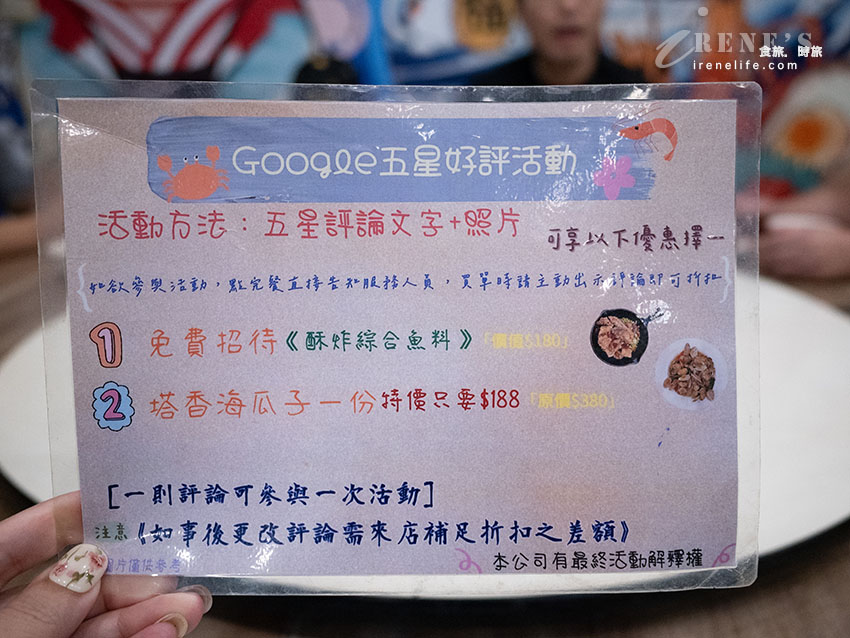 iRENE'S 食旅。時旅
irenelife.com
Google五星好評活動
活動方法：五星評論文字+照片 可享以下優惠擇一
{如欲參與活動，點完餐直接告知服務人員，買單時請主動出示評論即可折扣}
1 免費招待《酥炸綜合魚料》「價值$180」
2 塔香海瓜子一份特價只要$188「原價$380」
[一則評論可參與一次活動]
注意《如事後更改評論需來店補足折扣之差額》
圖片僅供參考 本公司有最終活動解釋權